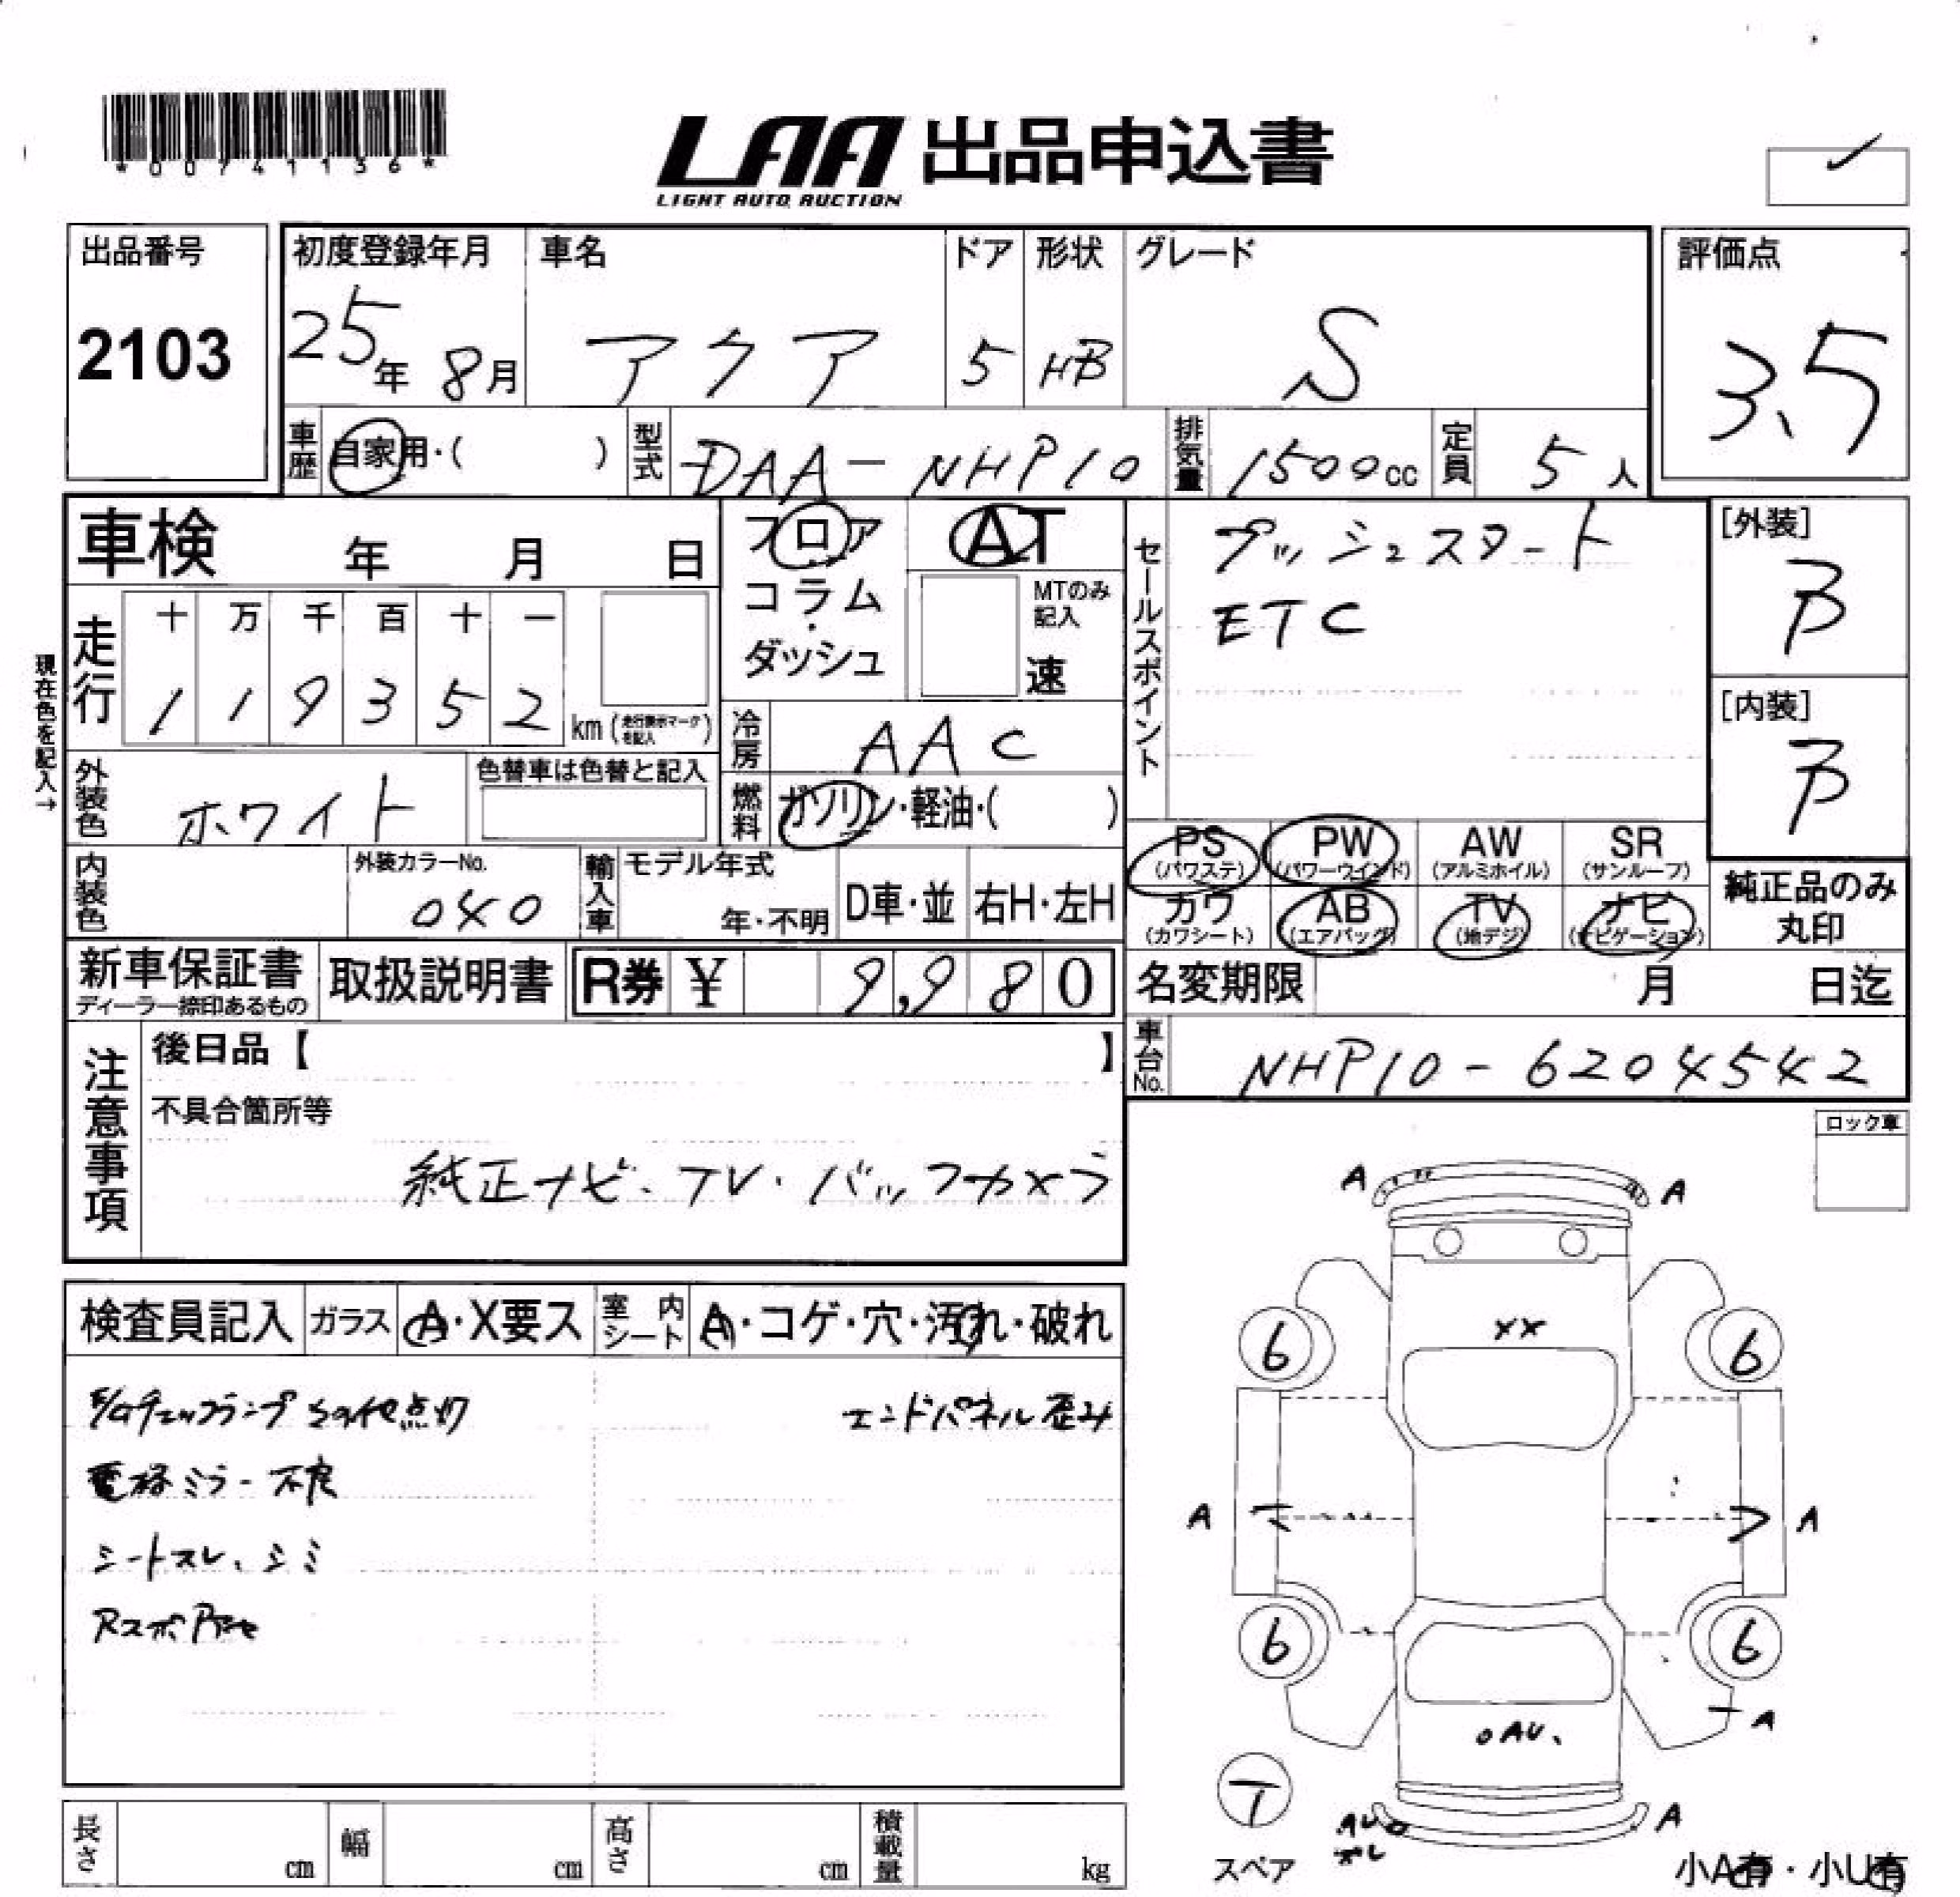 *00741136*
LAA 出品申込書
LIGHT AUTO AUCTION
出品番号
2103
初度登録年月
25年 8月
車名
アクア
ドア
5
形状
HB
グレード
S
評価点
3.5
車歴
自家用・( )
型式
DAA-NHP10
排気量
1500cc
定員
5人
車検 年 月 日
フロア
コラム
・
ダッシュ
AT
MTのみ
記入
速
セールスポイント
プッシュスタート
ETC
[外装]
B
[内装]
B
現在色を記入→
走行
十 万 千 百 十 一
1 1 9 3 5 2
km (走行表示マークを記入)
冷房
AAC
外装色
ホワイト
色替車は色替と記入
燃料
ガソリン・軽油・( )
内装色
外装カラーNo.
040
輸入車
モデル年式
年・不明
D車・並
右H・左H
PS
(パワステ)
PW
(パワーウインド)
AW
(アルミホイル)
SR
(サンルーフ)
カワ
(カワシート)
AB
(エアバッグ)
TV
(地デジ)
ナビ
(ナビゲーション)
純正品のみ
丸印
新車保証書
ディーラー捺印あるもの
取扱説明書
R券 ¥ 9,980
名変期限 月 日迄
車台No.
NHP10-6204542
注意事項
後日品【 】
不具合箇所等
純正ナビ・TV・バックカメラ
ロック車
検査員記入
ガラス
A・X要ス
室内シート
A・コゲ・穴・汚れ・破れ
E/Gチェックランプその他点灯
エンドパネル歪み
電格ミラー不良
シートスレ、シミ
A A
XX
6 6
A A
6 6
A
AU
T
スペア
AU
A
小A有・小U有
長さ cm
幅 cm
高さ cm
積載量 kg